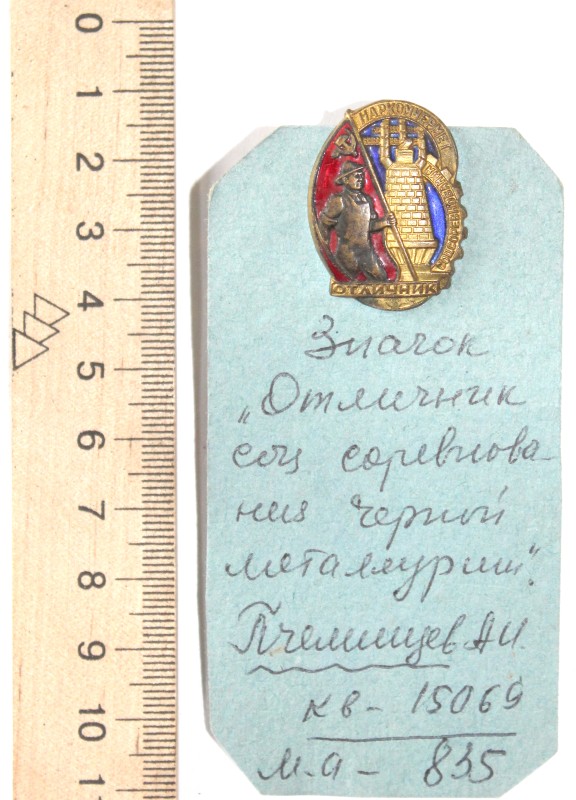 0
1
2
3
4
5
6
7
8
9
10
НАРКОМЧЕРМЕТ
ОТЛИЧНИК
Значок
„Отличник
соц соревнова-
ния черной
металлурии".
Пчелинцев А И.
кв - 15069
м.а - 835